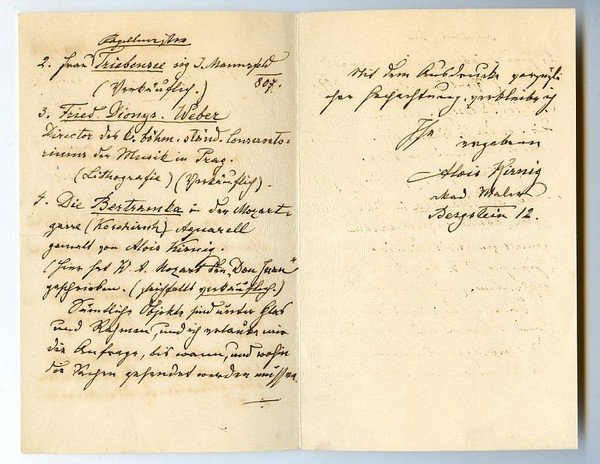 Kapellmeister
2. Frau Triebensee v. J. Mannsfeld
(Verkäuflich.) 807.
3. Fried. Dionys. Weber
Director des k. böhm. ständ. Conservato-
riums der Musik in Prag.
(Lithografie) (Verkäuflich).
4. Die Bertramka in der Mozart-
gasse (Koschirsch) Aquarell
gemalt von Alois Kirnig.
(Hier hat W. A. Mozart den "Don Juan"
geschrieben. (gleichfalls verkäuflich.)
Sämtliche Objekte sind unter Glas
und Rahmen, und ich erlaube mir
die Anfrage, bis wann, und wohin
die Sachen gesendet werden müssen.
Mit dem Ausdrucke vorzügli-
cher Hochachtung verbleibe ich
Ihr
ergebener
Alois Kirnig
akad Maler
Bergstein 12.